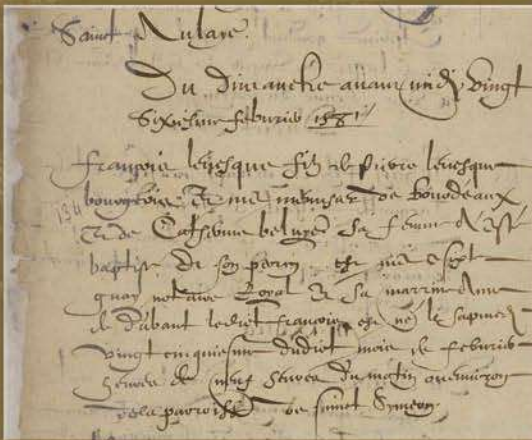 Sainct Aulaye.
Du dimanche avant midy vingt
Sixiesme febvrier 1581
françois levesque filz de pierre levesque
bourgeois et me menusier de bourdeaux
134
et de Catherine sa femme a esté
baptisé du son perin est
notaire Royal et sa marrine Anne
de dubant ledict françois est né le sapmedi
vingt cinquiesme dudict mois de febvrier
heures de neuf heures du matin ou environ
de la parroisse de sainct Symeon